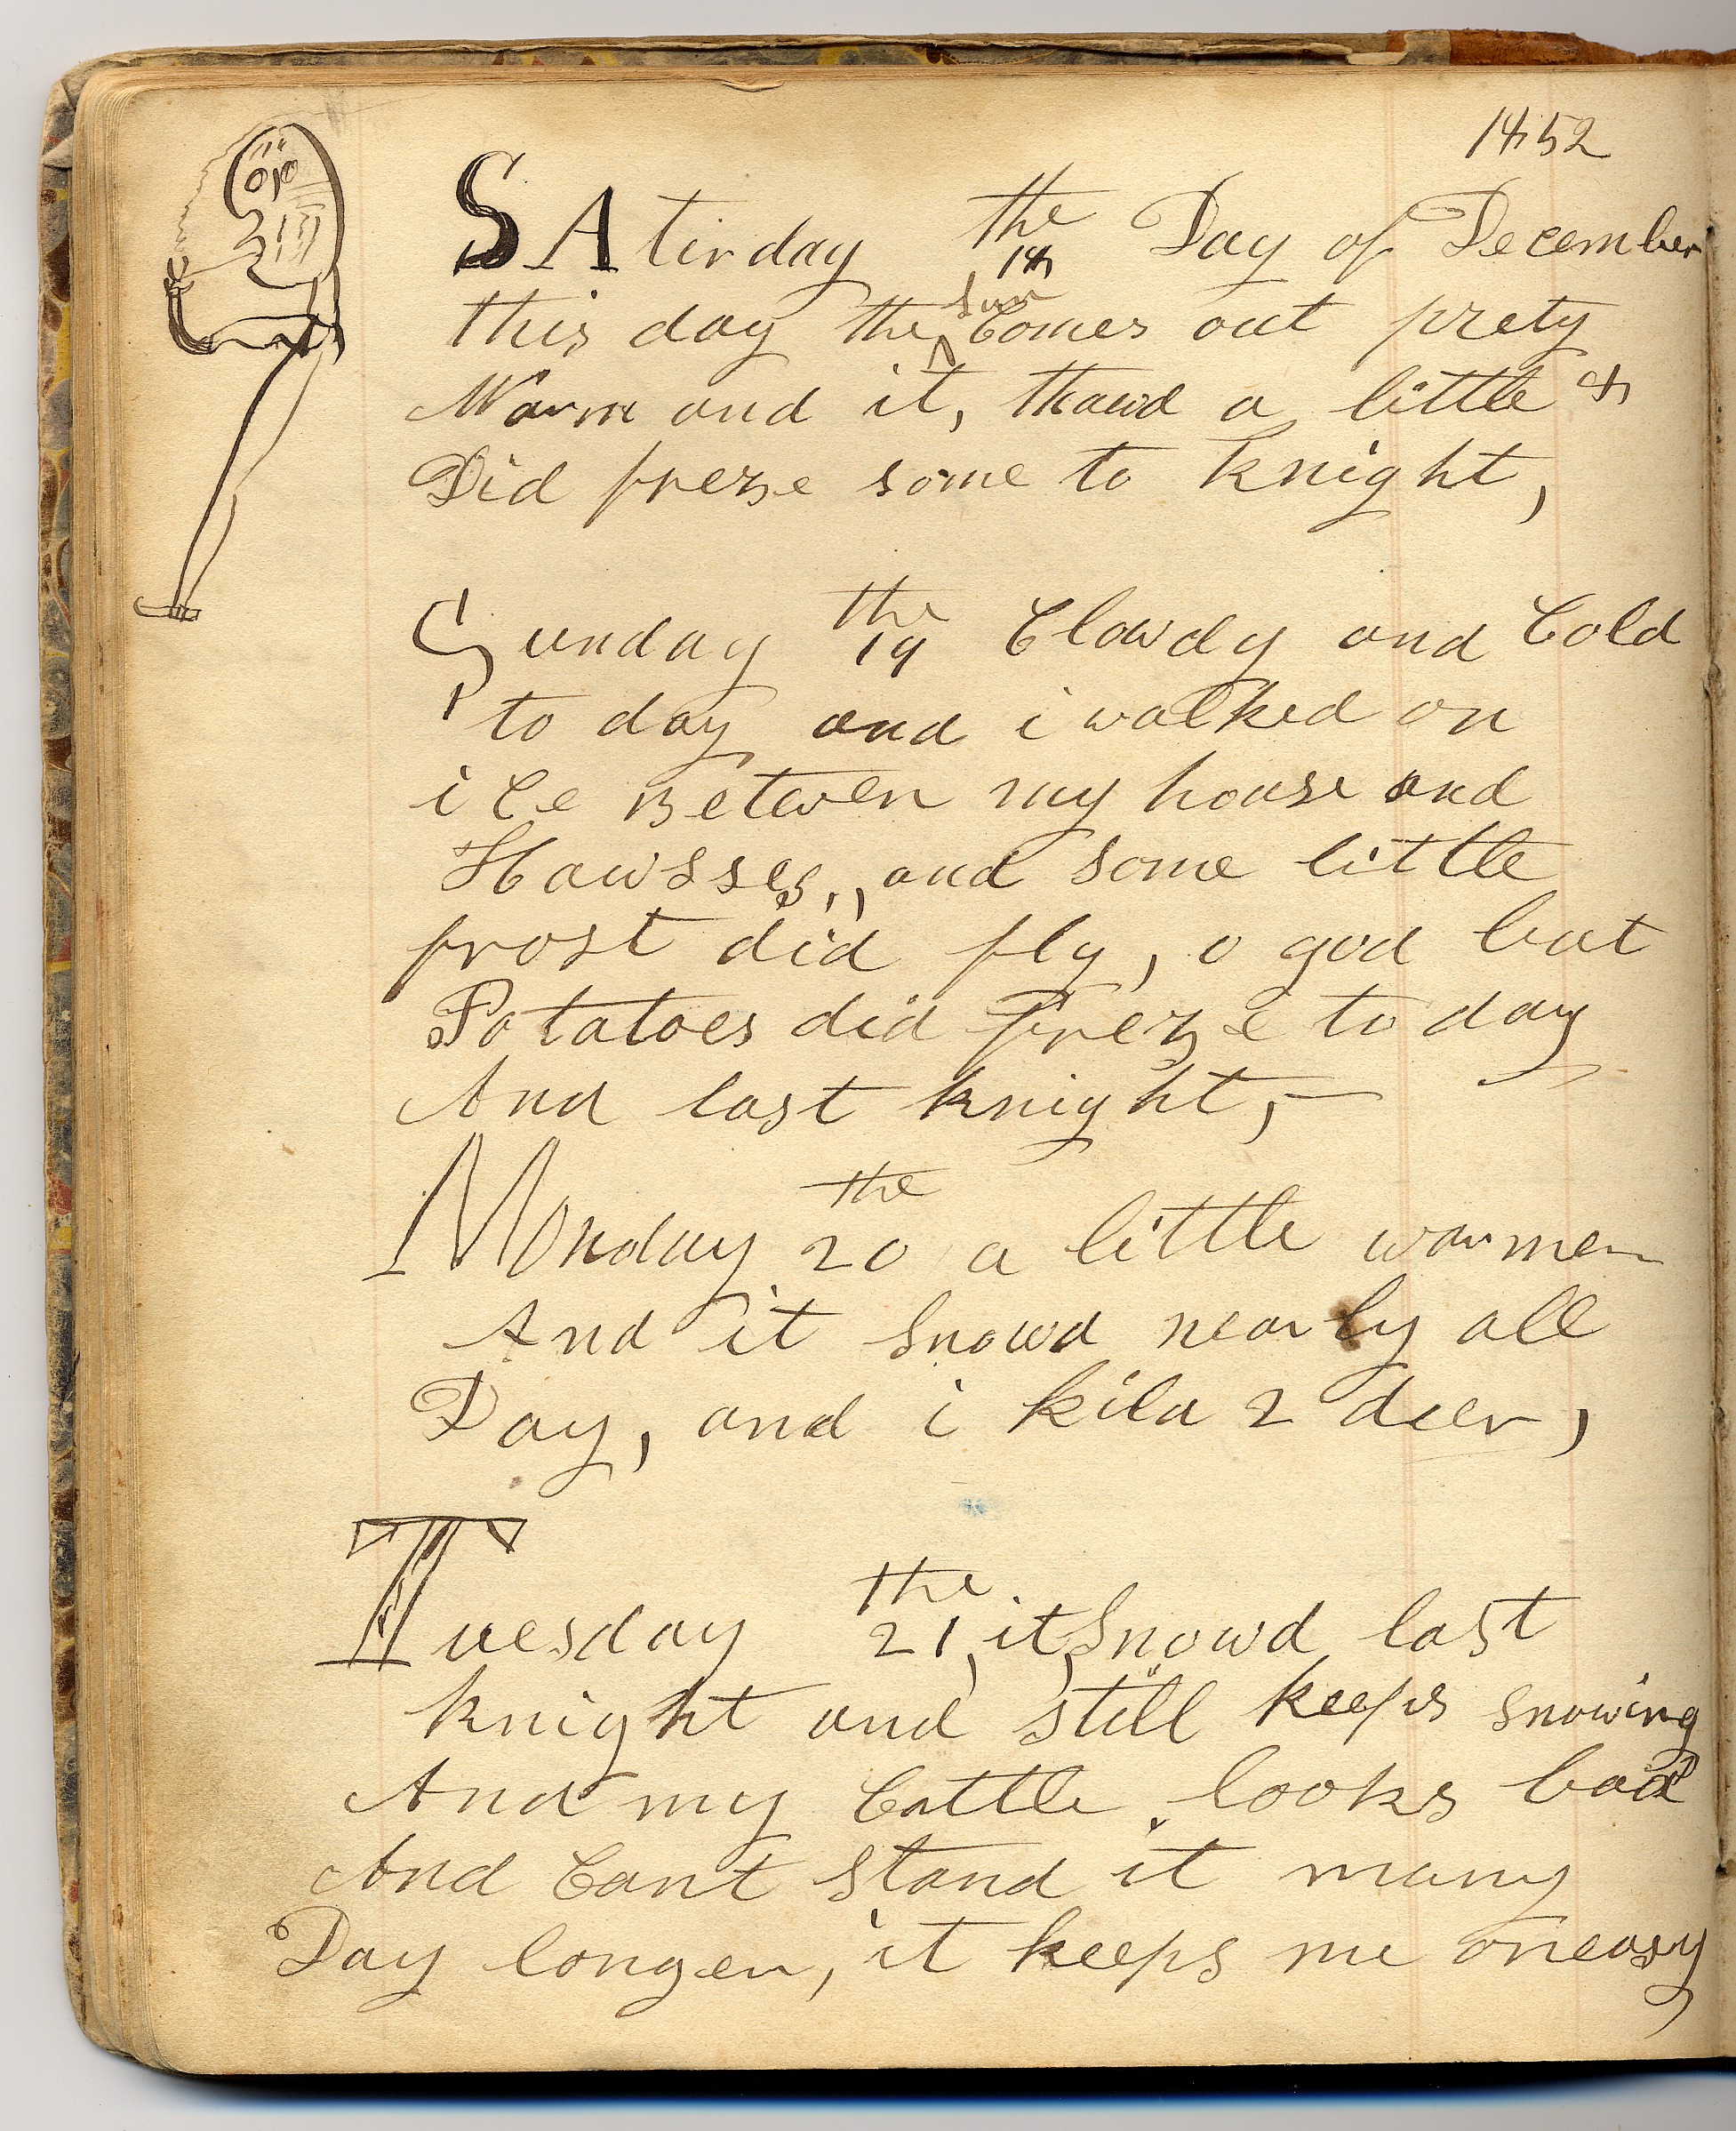 1852
SAtirday the 18 Day of December
this day the sun Comes out prety
Warm and it, thawd a little &
Did freze some to knight,
Sunday the 19 Clowdy and Cold
to day and i walked on
iCe Betwen my house and
Hawsses,, and some little
frost did fly, o god but
Potatoes did freze to day
And last knight,—
Monday the 20 a little warmer
And it Snowd nearly all
Day, and i kild 2 deer,
Tuesday the 21, it, Snowd last
knight and still keeps snowing
And my Cattle looks bad
And Cant Stand it many
Day longer, it keeps me oneasy